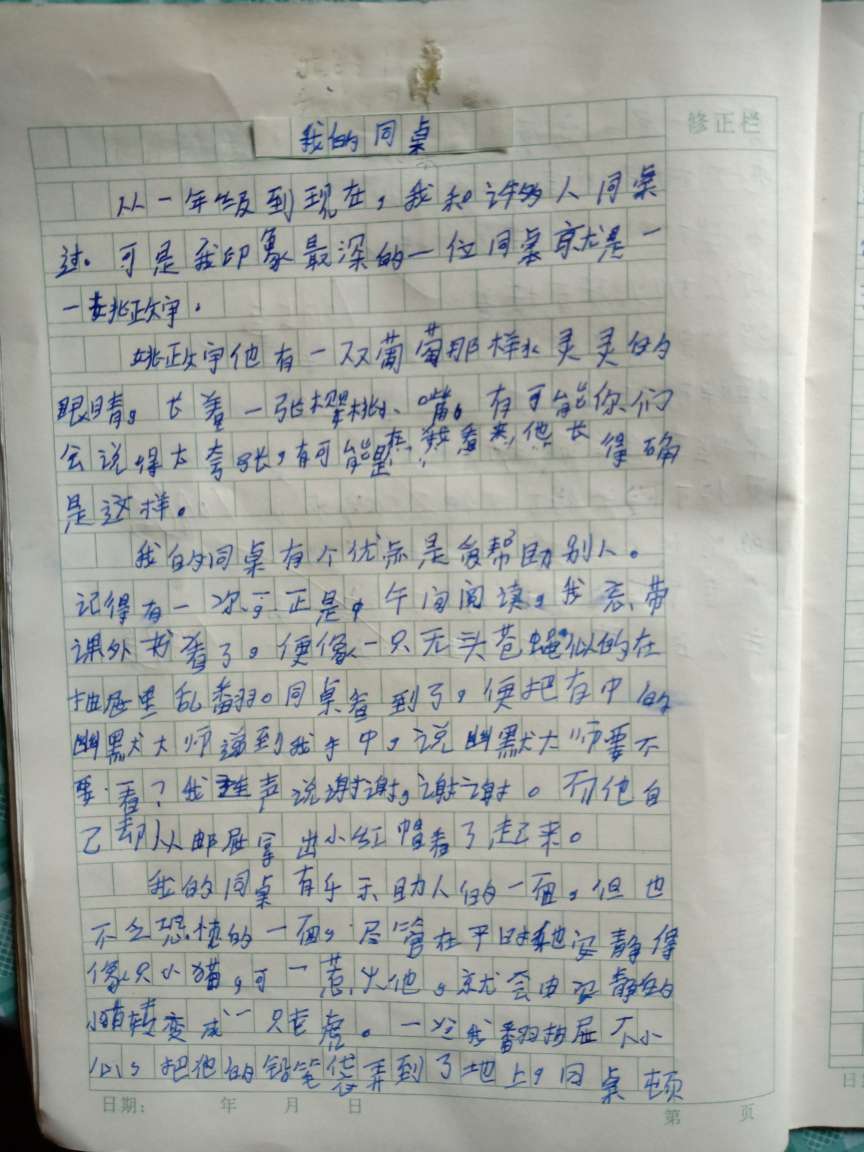 修正栏
我的同桌
从一年级到现在，我和许多人同桌
过。可是我印象最深的一位同桌就是一
一姚政宇。
姚政宇他有一双葡萄那样水灵灵的
眼睛，长着一张樱桃小嘴。有可能你们
会说得太夸张，有可能是，在我看来，他长得确
是这样。
我的同桌有个优点是爱帮助别人。
记得有一次，正是中午间阅读，我忘带
课外书看了。便像一只无头苍蝇似的在
抽屉里乱翻。同桌看到了，便把存中的
幽默大师递到我手中，说幽默大师要不
要看？我连声说谢谢，谢谢。而他自
己却从邮屉拿出小红帽看了起来。
我的同桌有乐于助人的一面，但也
不乏恐怖的一面，尽管在平时他安静得
像只小猫，可一惹火他，就会由安静的
小猫转变成一只老虎。一次我翻抽屉不小
心把他的铅笔袋弄到了地上，同桌顿
日期： 年 月 日
第 页